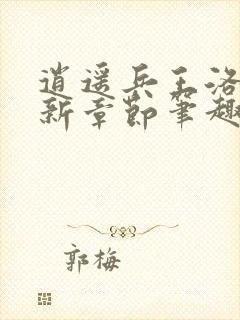 逍遥兵王洛
新章节笔趣
郭梅